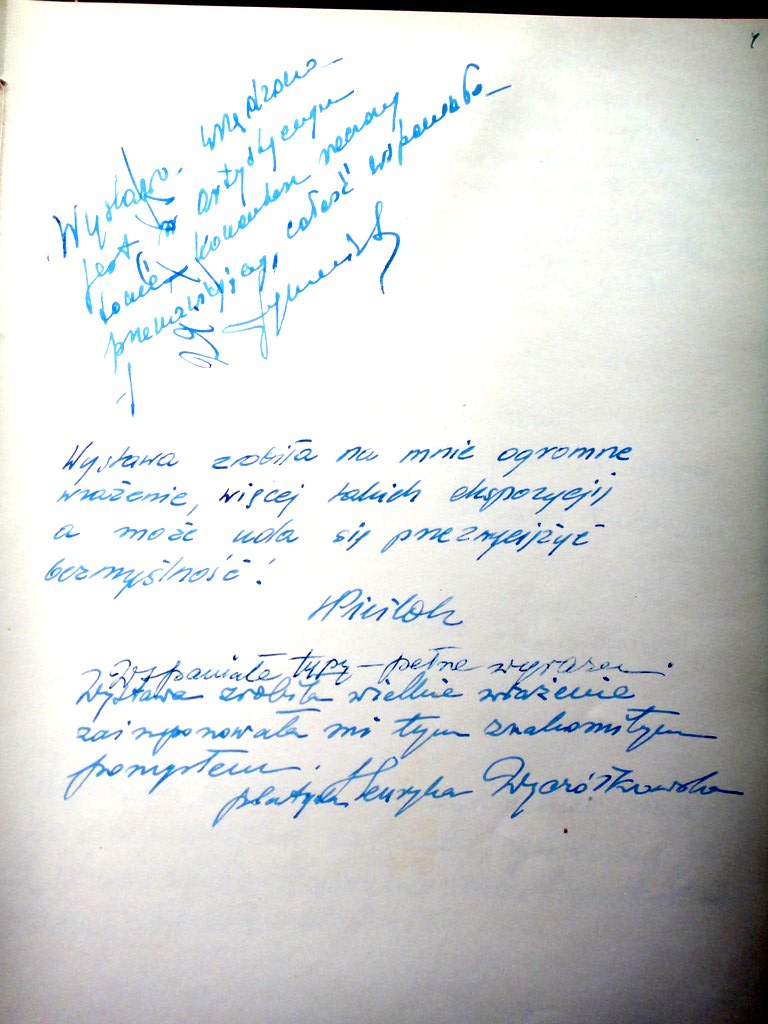 Wystawa urządzona
jest w artystycznym
tonie, komentarz
przemawiający, całość wspaniała
Wystawa zrobiła na mnie ogromne
wrażenie, więcej takich ekspozycji
a może uda się przezwyciężyć
bezmyślność!
Wspaniałe typy – pełne wyrazu.
Wystawa zrobiła wielkie wrażenie
zaimponowała mi tym znakomitym
pomysłem.
plastyk Henryka Wyczółkowska